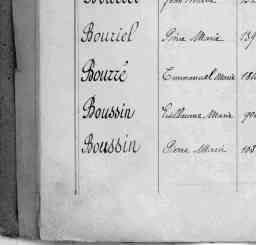 Bouriel Marie 139
Bourré Emmanuel Marie 18
Boussin Guillaume Marie 90
Boussin Pierre Marie 103